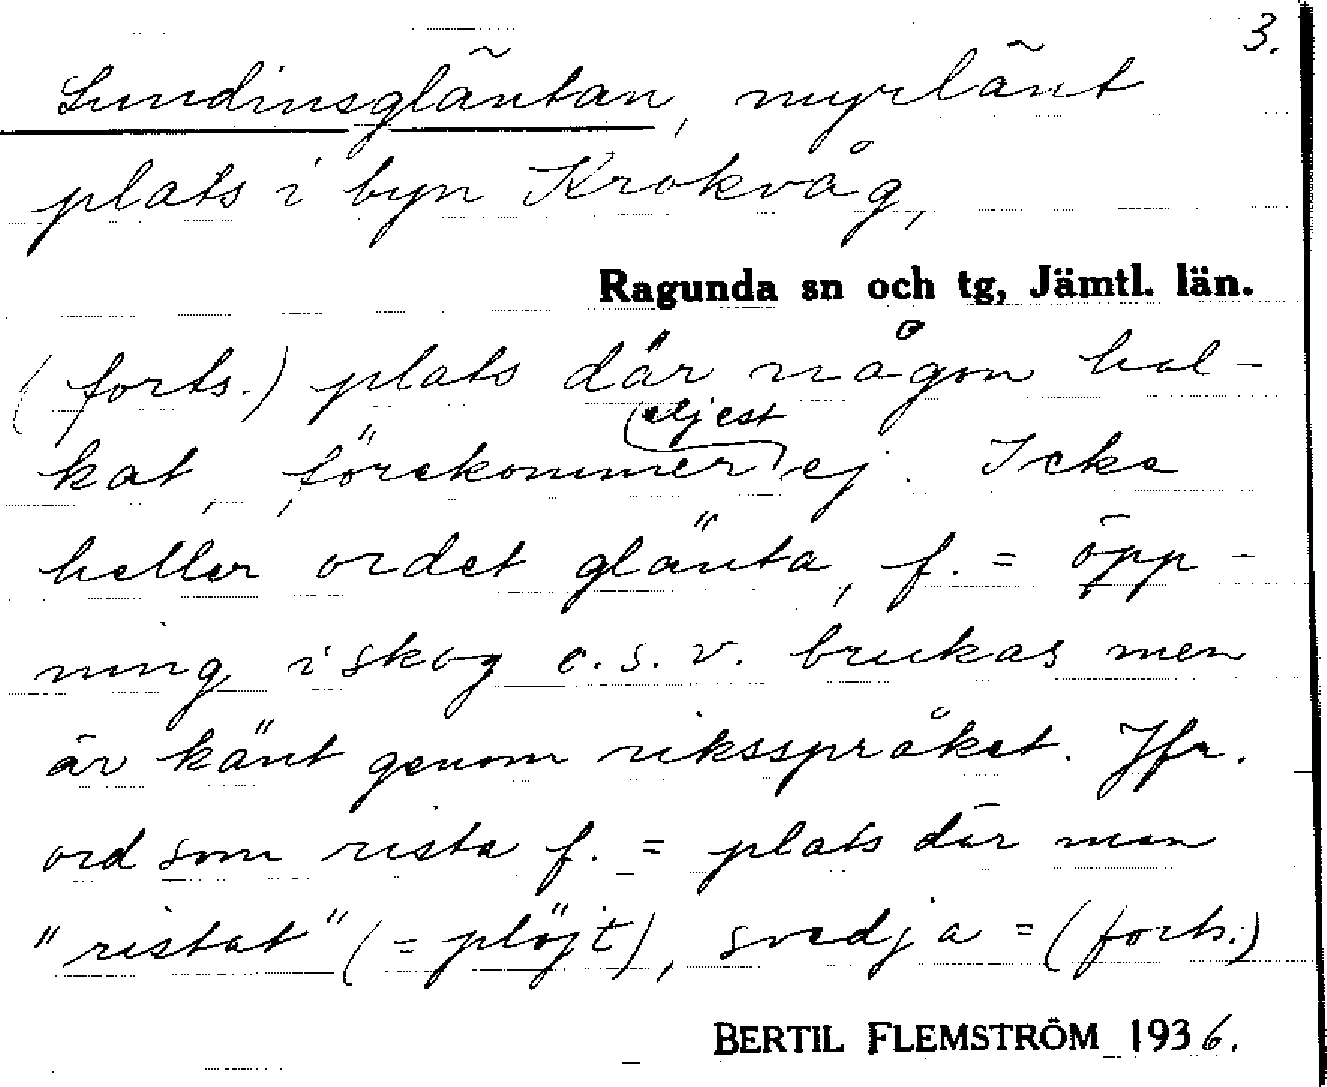 3.
Sundinsgläntan, myrlänt
plats i byn Krokvåg,
Ragunda sn och tg, Jämtl. län.
(forts.) plats där någon hal-
kat, förekommer eljest ej. Icke
heller ordet glänta, f. = öpp-
ning i skog o.s.v. brukas men
är känt genom riksspråket. Jfr.
ord som rista f. = plats där man
"ristat" (= plöjt), svedja = (forts.)
BERTIL FLEMSTRÖM 1936.